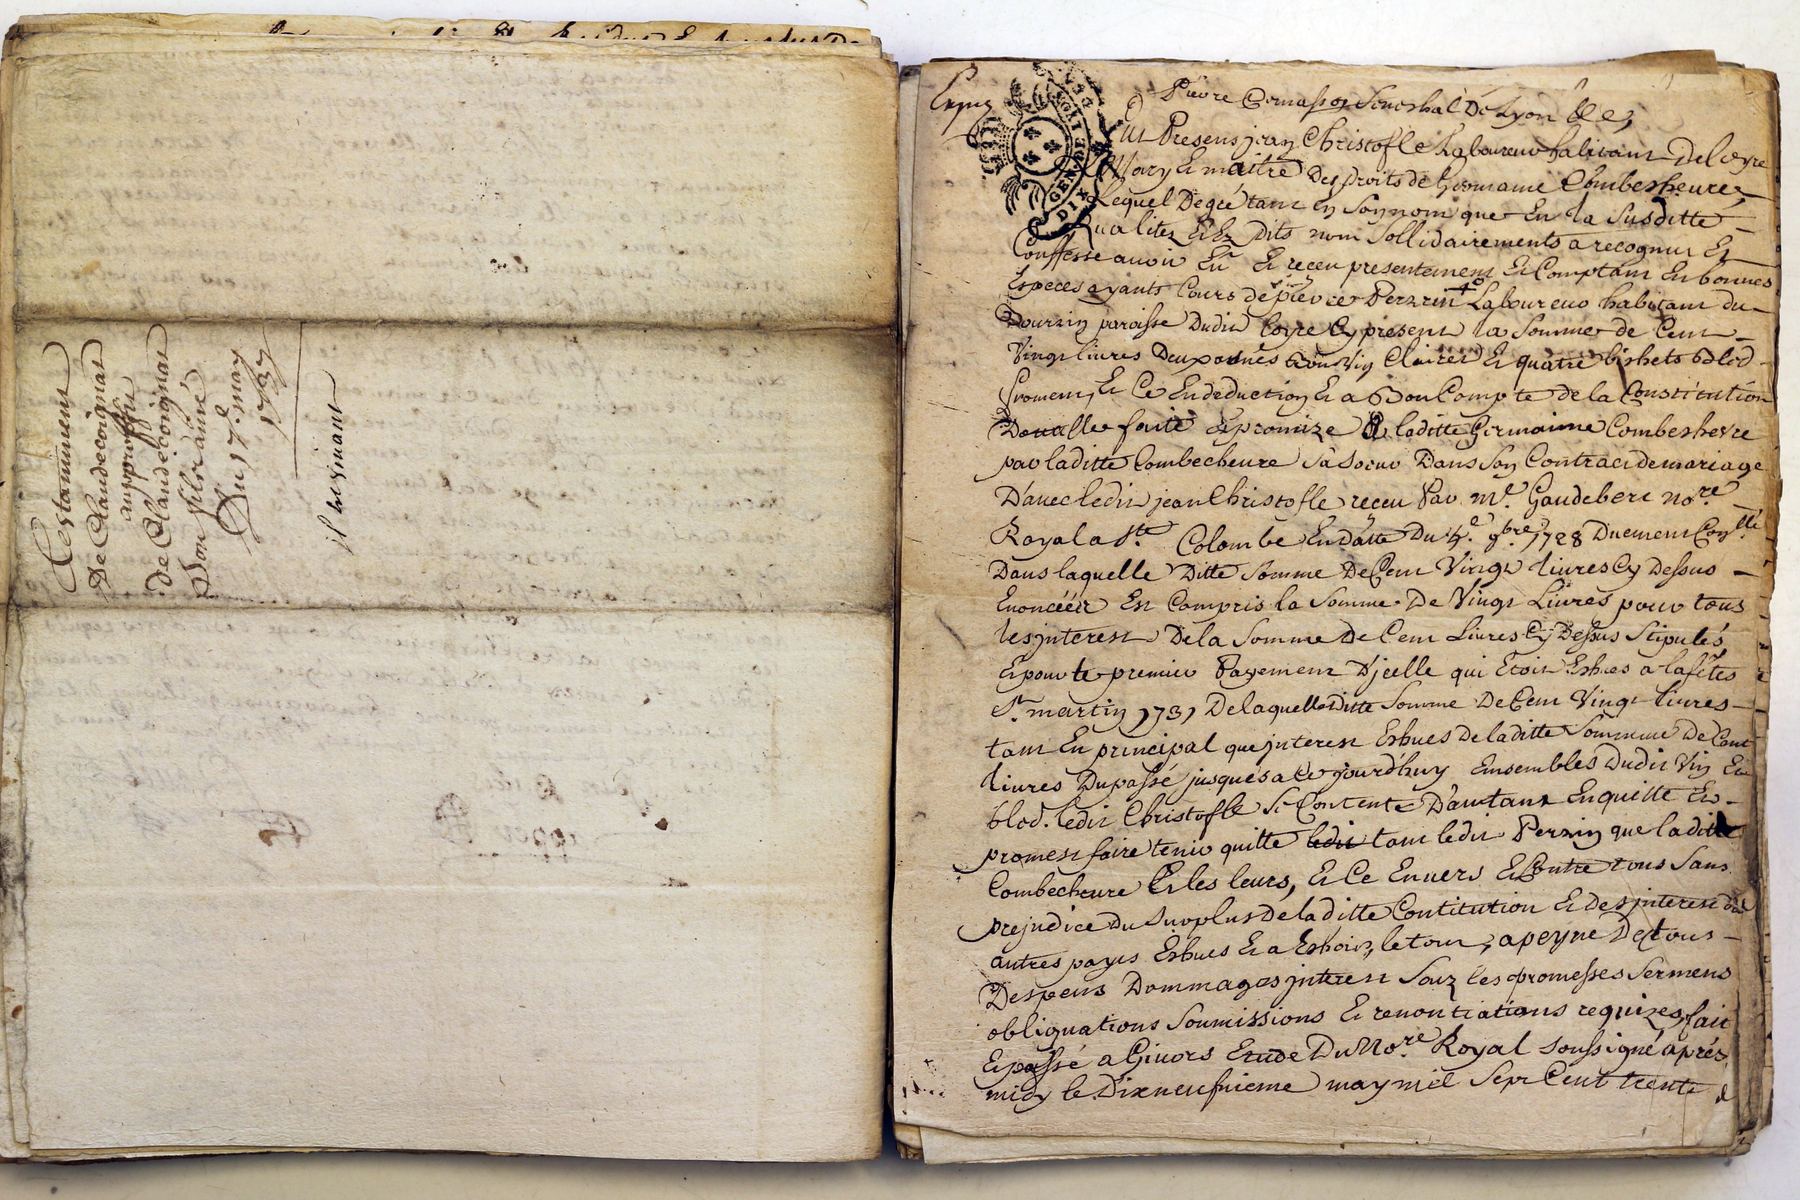 Testament
De Claude coignat
au proffit
de Claude coignat
Son fils aîné
Du 17e. may
1737
Expéz
GEN DE LYON
DIX
Pierre Seneshal De Lyon &c,
fut Present jean Christofle Laboureur habitant De loyre
Mary Et maitre Des droits de Germaine Combesheure,
Lequel De gré tant En son nom que En la Susditte
Qualitez Et Ez Dits nom Sollidairements a recognu Et
Confesse avoir Eu Et receu presentement Et Comptant En bonnes
Especes ayants Cours de pierre Perzin Laboureur habitant du
Dourzin paroisse Dudit loyre Cy present la Somme de Cent
Vingt livres Deux Vin Clairet Et quatre bishets bled
froment, Et Ce En deduction Et a Bon Compte de la Constitution
Dotalle faite Et promize A laditte Germaine Combesheure
par laditte Combecheure Sa Soeur Dans Son Contract de mariage
D'avec ledit jean Christofle receu Par Me. Gaudebert nore.
Royal a Ste. Colombe En datte Du 4e. 9bre. 1728 Duement Conllé
Dans laquelle Ditte Somme De Cent Vingt livres Cy Dessus
Enoncéér Est Compris la Somme De Vingt Livres pour tous
les jnterest De la Somme De Cent Livres Cy Dessus Stipulés
Et pour le premier Payement D'jcelle qui Etoit Eshus a la fêtes
St. martin 1731 De laquelle Ditte Somme De Cent Vingt livres
tant En principal que jnterest Eshues de laditte Sommme De Cent
livres Du passé jusques a Ce jourd'huy Ensembles Dudit Vin Et
bled. ledit Christofle Se Contente D'autant En quitte Et
promest faire tenir quitte ledit tant ledit Perzin que laditte
Combecheure Et les leurs, Et Ce Envers Et Contre tous Sans
prejudice Du Surplus De laditte Contitution Et Des jnterest Des
autres payes Eshues Et a Eshoir, le tout, a peyne De tous
Despens Dommages jnterest Souz les promesses Sermens
obliguations Soumissions Et renontiations requizes, fait
Et passé a Givors Etude Du Nore. Royal Soussigné après
midy le Dixneufvieme may mil Sept Cent trente